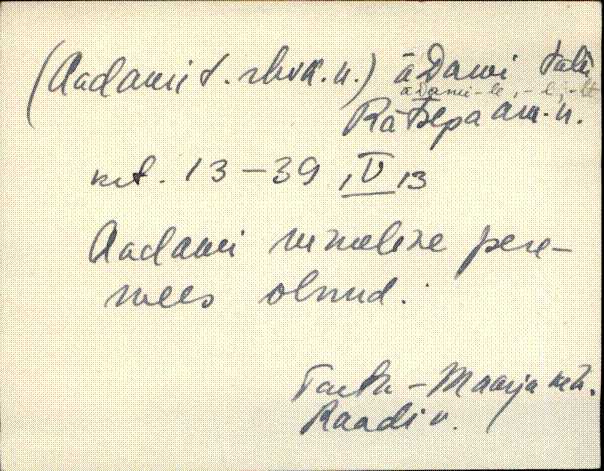 (Aadami t. rhvk. n.) āDami talu
āDami-le, -l, -lt
Rātsepa am. n.
krt. 13-39, IV, 13
Aadami nimeline pere-
mees olnud.
Tartu-Maarja kih.
Raadi v.